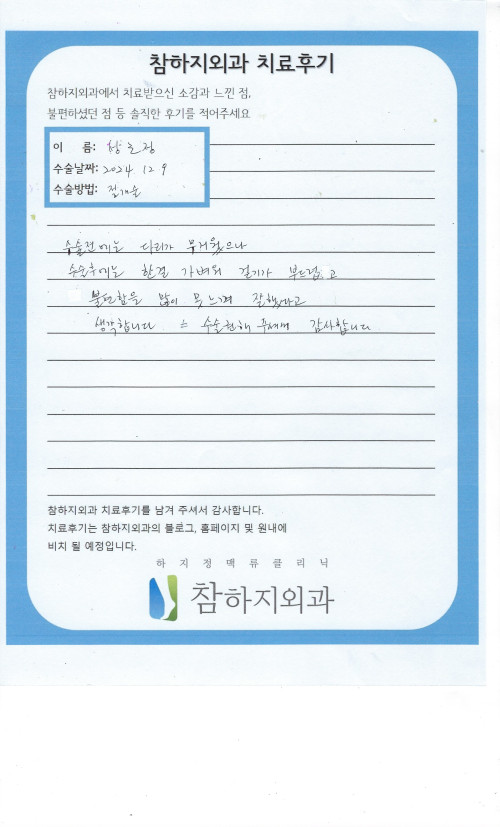 참하지외과 치료후기
참하지외과에서 치료받으신 소감과 느낀 점,
불편하셨던 점 등 솔직한 후기를 적어주세요
이 름:
수술날짜: 2024 12 9
수술방법: 절개술
수술전에는 다리가 무거웠으나
수술후에는 한결 가벼워 걷기가 부드럽고
불편함을 많이 못느껴 잘했다고
생각합니다 수술헌해 주셔서 감사합니다
참하지외과 치료후기를 남겨 주셔서 감사합니다.
치료후기는 참하지외과의 블로그, 홈페이지 및 원내에
비치 될 예정입니다.
하지정맥류클리닉
참하지외과